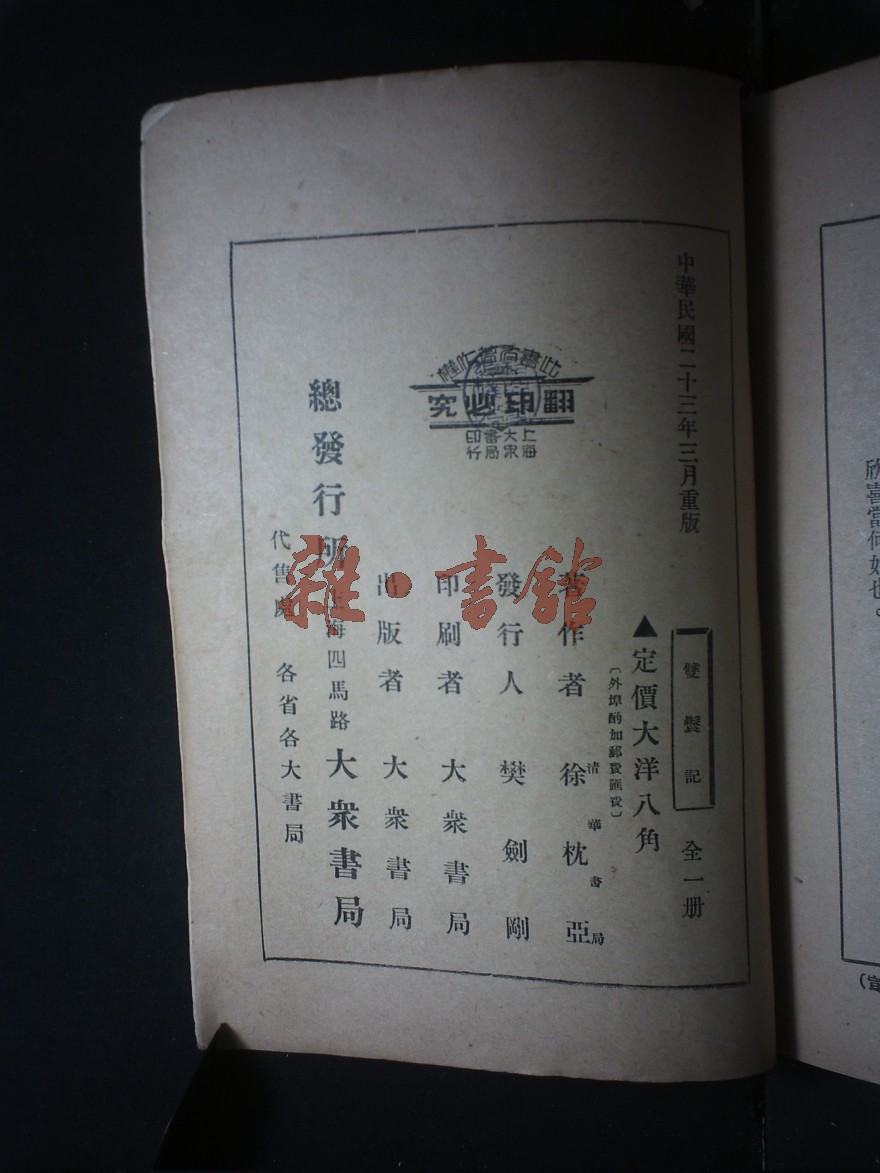 中華民國二十三年三月重版
雙鬟記
全一册
▲定價大洋八角
〔外埠酌加郵費匯費〕
著作者 徐枕亞
清華書局
發行人 樊劍剛
印刷者 大衆書局
出版者 大衆書局
總發行所 上海四馬路 大衆書局
代售處 各省各大書局
此書有著作權
翻印必究
上海
大衆
書局
印行
雜·書館
欣喜當何如也。